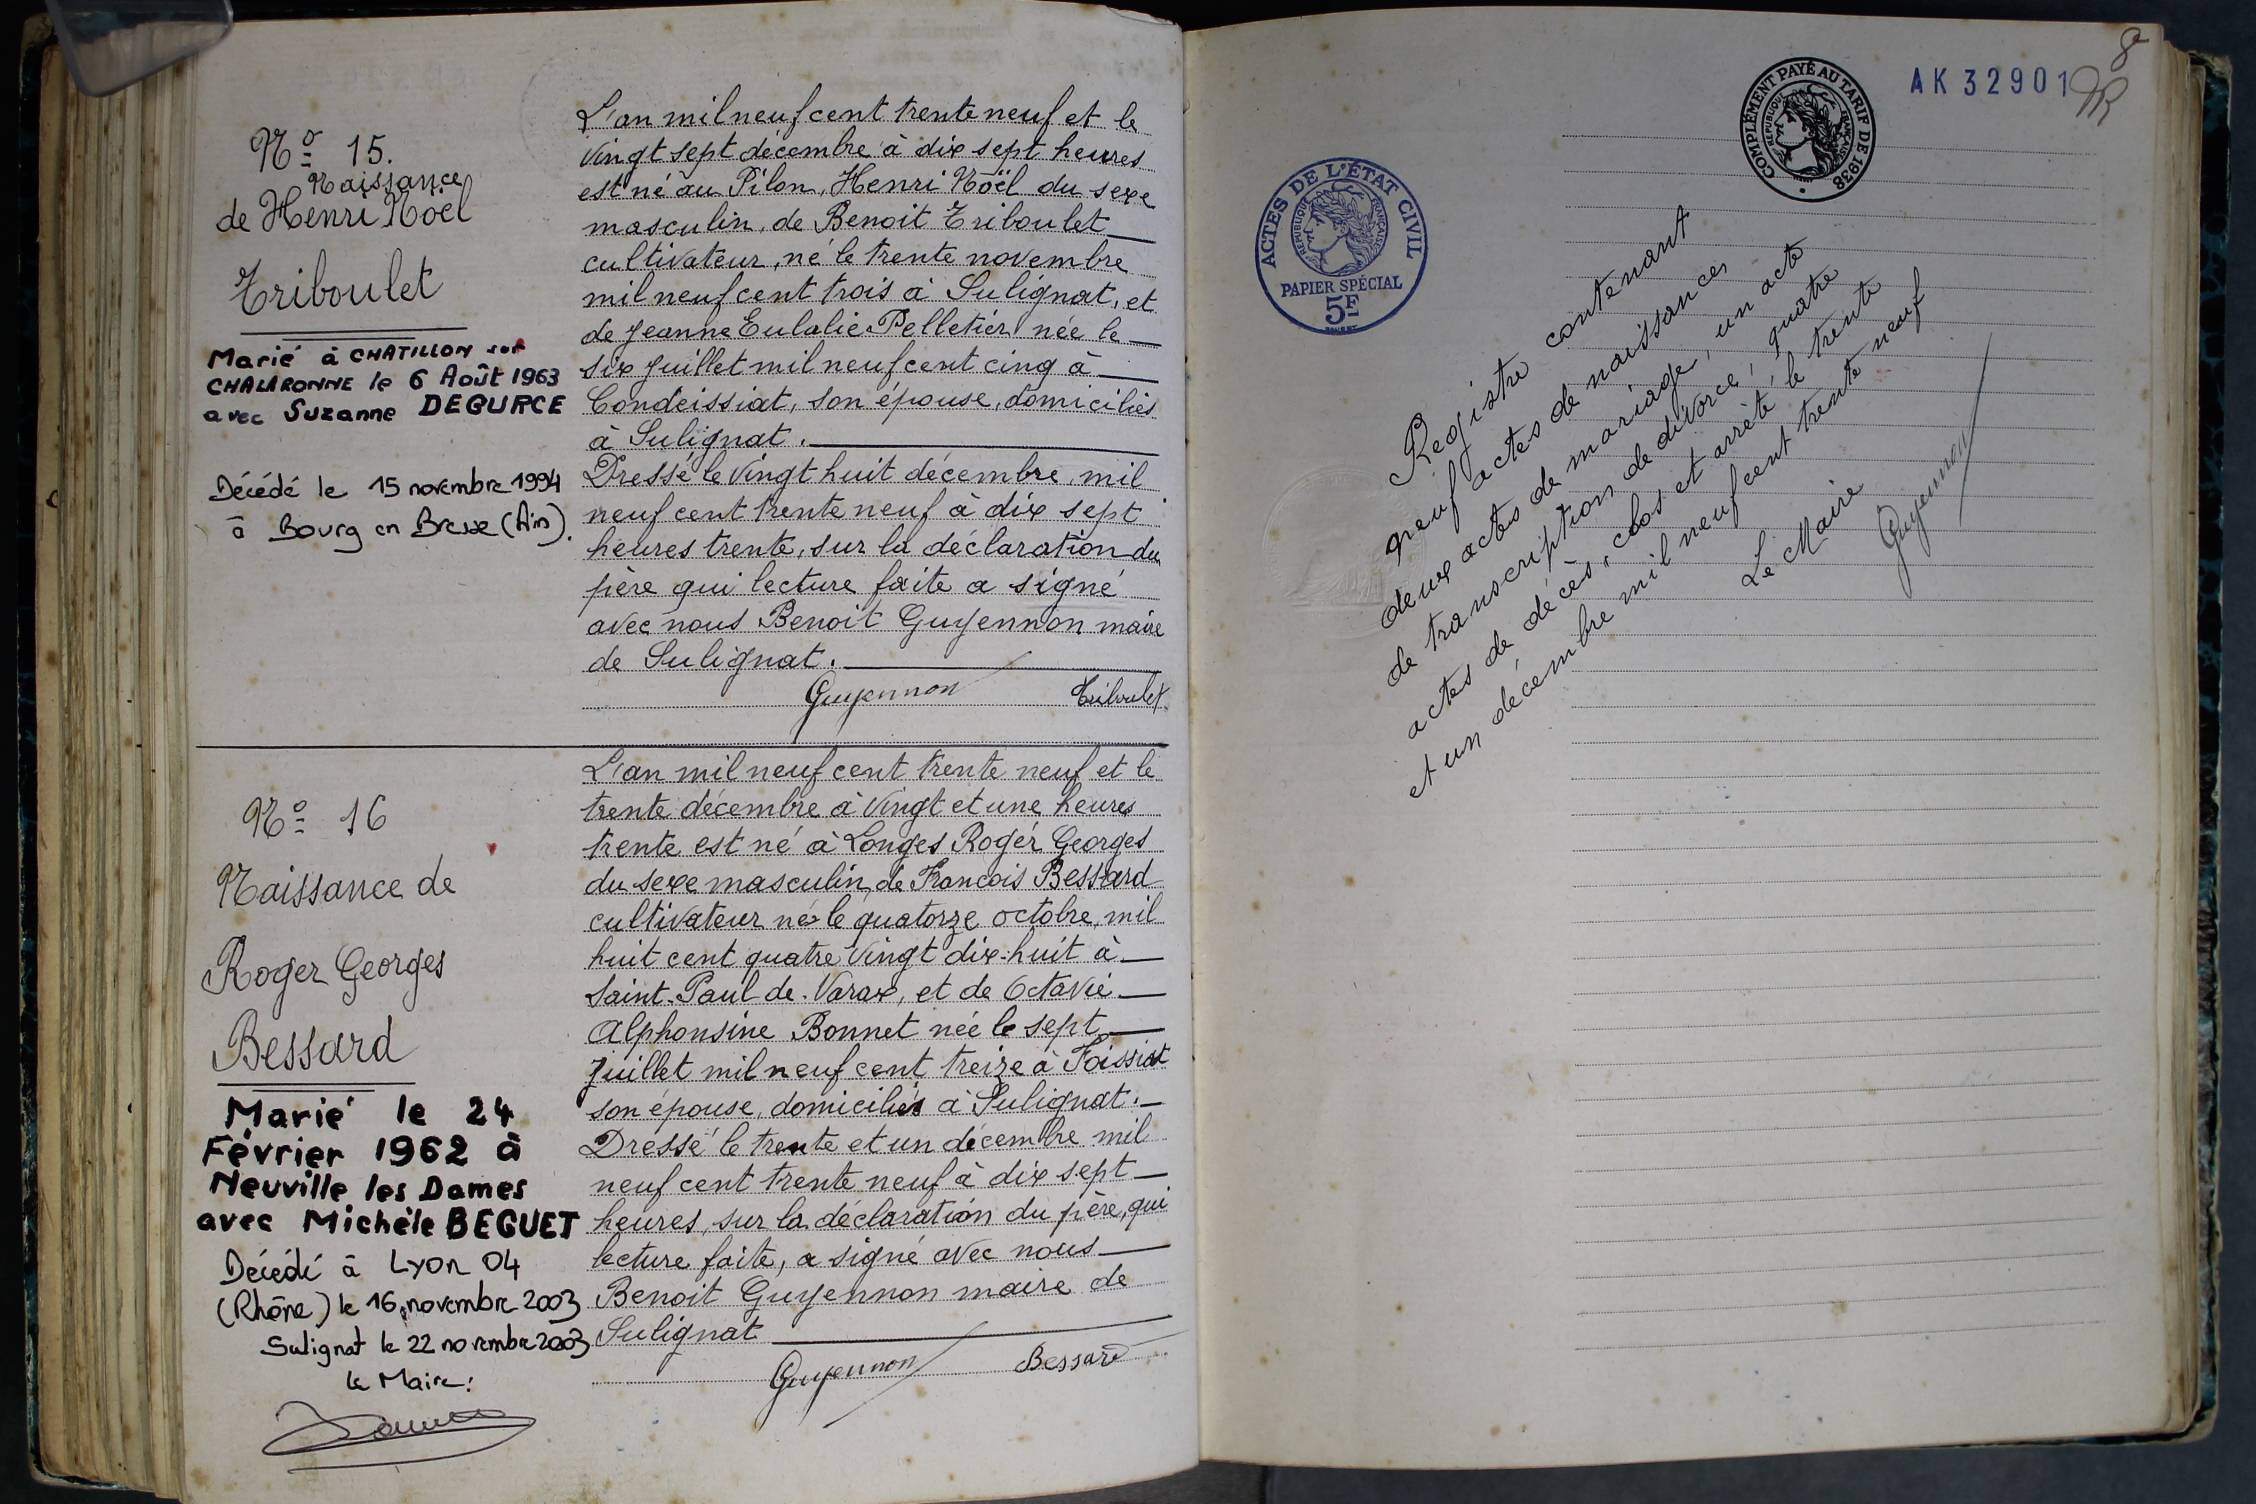 Nº 15.
Naissance
de Henri Noël
Triboulet
Marié à CHATILLON sur
CHALARONNE le 6 Août 1963
avec Suzanne DEGURCE
Décédé le 15 novembre 1994
à Bourg en Bresse (Ain).
L'an mil neuf cent trente neuf et le
vingt sept décembre à dix sept heures
est né au Pilon, Henri Noël du sexe
masculin, de Benoit Triboulet
cultivateur, né le trente novembre
mil neuf cent trois à Sulignat, et
de Jeanne Eulalie Pelletier née le
six juillet mil neuf cent cinq à
Condeissiat, son épouse, domiciliés
à Sulignat.
Dressé le vingt huit décembre mil
neuf cent trente neuf à dix sept
heures trente, sur la déclaration du
père qui lecture faite a signé
avec nous Benoit Guyennon maire
de Sulignat.
Guyennon Triboulet
Nº 16
Naissance de
Roger Georges
Bessard
Marié le 24
Février 1962 à
Neuville les Dames
avec Michèle BEGUET
Décédé à Lyon 04
(Rhône) le 16 novembre 2003
Sulignat le 22 novembre 2003
Le Maire:
L'an mil neuf cent trente neuf et le
trente décembre à vingt et une heures
trente est né à Longes Roger Georges
du sexe masculin, de Francois Bessard
cultivateur né le quatorze octobre, mil
huit cent quatre vingt dix-huit à
Saint-Paul de Varax, et de Octavie
Alphonsine Bonnet née le sept
juillet mil neuf cent treize à Foissiat
son épouse, domiciliés à Sulignat.
Dressé le trente et un décembre mil
neuf cent trente neuf à dix sept
heures, sur la déclaration du père, qui
lecture faite, a signé avec nous
Benoit Guyennon maire de
Sulignat
Guyennon Bessard
8
AK 32901
COMPLÉMENT PAYÉ AU TARIF DE 1938
RÉPUBLIQUE FRANÇAISE
ACTES DE L'ÉTAT CIVIL
RÉPUBLIQUE FRANÇAISE
PAPIER SPÉCIAL
5F
Registre contenant
neuf actes de naissances
deux actes de mariage, un acte
de transcription de divorce, quatre
actes de décès, clos et arrêté le trente
et un décembre mil neuf cent trente neuf
Le Maire
Guyennon